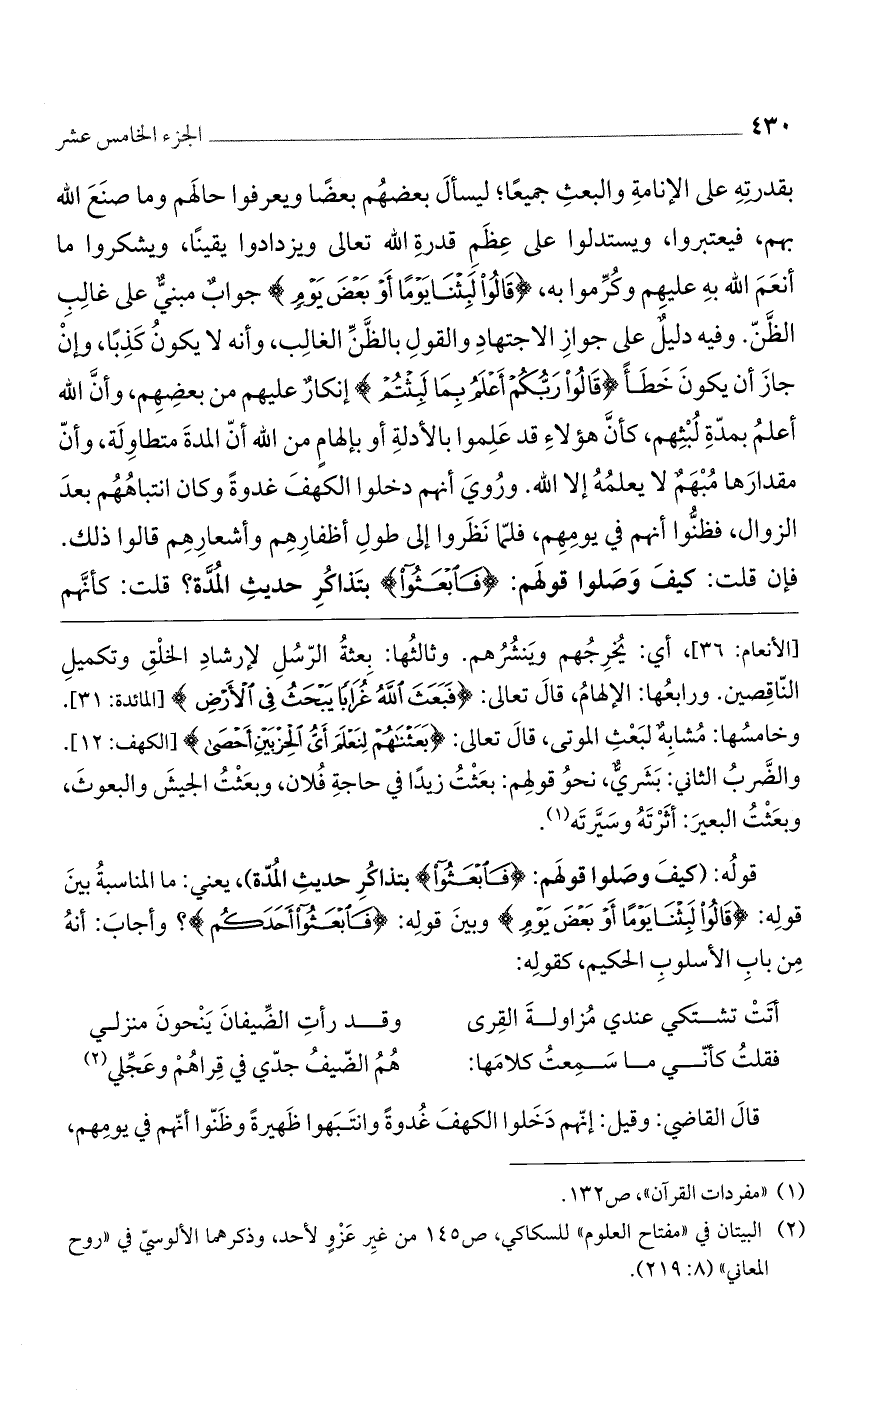 ٤٣٠ ــــــــــــــــــــ الجزء الخامس عشر
بقدرتِهِ على الإنامةِ والبعثِ جميعًا؛ ليسألَ بعضهُم بعضًا ويعرفوا حالَهم وما صنَعَ الله
بهم، فيعتبروا، ويستدلوا على عِظَمِ قدرةِ الله تعالى ويزدادوا يقينًا، ويشكروا ما
أنعَمَ الله بهِ عليهِم وكُرِّموا به، ﴿قَالُوا۟ لَبِثْنَا يَوْمًا أَوْ بَعْضَ يَوْمٍ﴾ جوابٌ مبنيٌّ على غالِبِ
الظَّنّ. وفيه دليلٌ على جوازِ الاجتهادِ والقولِ بالظَّنِّ الغالِب، وأنه لا يكونُ كَذِبًا، وإنْ
جازَ أن يكونَ خَطَأً ﴿قَالُوا۟ رَبُّكُمْ أَعْلَمُ بِمَا لَبِثْتُمْ﴾ إنكارٌ عليهم من بعضِهِم، وأنَّ الله
أعلمُ بمدّةِ لُبْثِهم، كأنَّ هؤلاءِ قد عَلِموا بالأدلةِ أو بإلهامٍ من الله أنّ المدةَ متطاوِلَة، وأنّ
مقدارَها مُبْهَمٌ لا يعلمُهُ إلا الله. ورُويَ أنهم دخلوا الكهفَ غدوةً وكان انتباهُهُم بعدَ
الزوال، فظنُّوا أنهم في يومِهِم، فلمّا نَظَروا إلى طولِ أظفارِهِم وأشعارِهِم قالوا ذلك.
فإن قلت: كيفَ وَصَلوا قولَهم: ﴿فَٱبْعَثُوٓا۟﴾ بتَذاكُرِ حديثِ المُدَّة؟ قلت: كأنَّهم
[الأنعام: ٣٦]، أي: يُخرِجُهم ويَنشُرُهم. وثالثُها: بعثةُ الرّسُلِ لإرشادِ الخلْقِ وتكميلِ
النّاقِصين. ورابعُها: الإلهامُ، قالَ تعالى: ﴿فَبَعَثَ ٱللَّهُ غُرَابًا يَبْحَثُ فِى ٱلْأَرْضِ﴾ [المائدة: ٣١].
وخامسُها: مُشابِهٌ لبَعْثِ الموتى، قالَ تعالى: ﴿بَعَثْنَٰهُمْ لِنَعْلَمَ أَىُّ ٱلْحِزْبَيْنِ أَحْصَىٰ﴾ [الكهف: ١٢].
والضَّربُ الثاني: بَشَريٌّ، نحوُ قولِهم: بعَثْتُ زيدًا في حاجةِ فُلان، وبعَثْتُ الجيشَ والبعوثَ،
وبعَثْتُ البعيرَ: أثَرْتَهُ وسَيَّرتَه(١).
قولُه: (كيفَ وصَلوا قولَهم: ﴿فَٱبْعَثُوٓا۟﴾ بتذاكُرِ حديثِ المُدّة)، يعني: ما المناسبةُ بينَ
قولِه: ﴿قَالُوا۟ لَبِثْنَا يَوْمًا أَوْ بَعْضَ يَوْمٍ﴾ وبينَ قولِه: ﴿فَٱبْعَثُوٓا۟ أَحَدَكُم﴾؟ وأجابَ: أنهُ
مِن بابِ الأسلوبِ الحكيم، كقولِه:
أتَتْ تشـتكي عندي مُزاولـةَ القِرى    وقـد رأتِ الضِّيفانَ يَنْحونَ منزلـي
فقلتُ كأنّـي مـا سَـمِعتُ كلامَها:    هُمُ الضّيفُ جدّي في قِراهُمْ وعَجِّلي(٢)
قالَ القاضي: وقيل: إنّهم دَخَلوا الكهفَ غُدوةً وانتَبَهوا ظَهيرةً وظَنّوا أنّهم في يومِهم،
(١) «مفردات القرآن»، ص١٣٢.
(٢) البيتان في «مفتاح العلوم» للسكاكي، ص١٤٥ من غيِر عَزْوٍ لأحد، وذكرهما الألوسيّ في «روح
المعاني» (٨: ٢١٩).